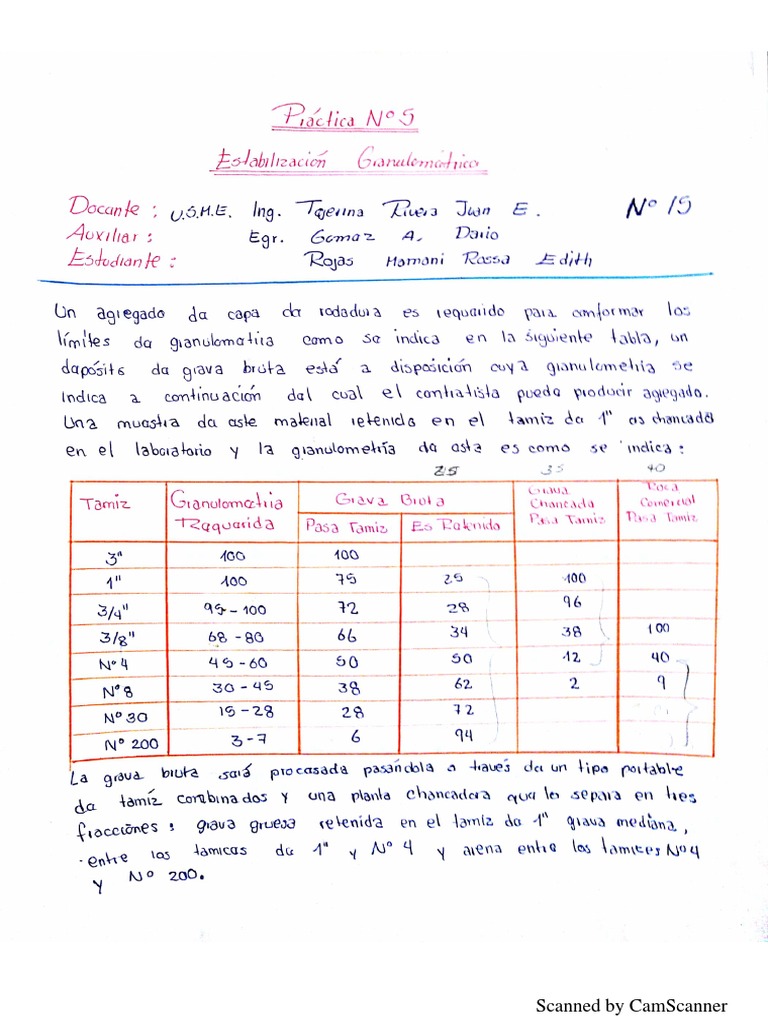 Práctica Nº 5
Estabilización Granulométrica
Docente: U.S.M.E. Ing. Tejerina Rivera Juan E. Nº 15
Auxiliar: Egr. Gomez A. Dario
Estudiante: Rojas Mamani Rossa Edith
Un agregado de capa de rodadura es requerido para conformar los
límites de granulometria como se indica en la siguiente tabla, un
depósito de grava bruta está a disposición cuya granulometría se
indica a continuación del cual el contratista puede producir agregado.
Una muestra de este material retenido en el tamiz de 1" es chancado
en el laboratorio y la granulometría de esta es como se indica:
25 35 40
Tamiz Granulometria Requerida Grava Bruta Pasa Tamiz Es Retenido Grava Chancada Pasa Tamiz Roca Comercial Pasa Tamiz
3" 100 100
1" 100 75 25 100
3/4" 95-100 72 28 96
3/8" 68-80 66 34 38 100
Nº 4 45-60 50 50 12 40
Nº 8 30-45 38 62 2 9
Nº 30 15-28 28 72
Nº 200 3-7 6 94
La grava bruta será procesada pasándola a través de un tipo portable
de tamiz combinados y una planta chancadora que los separa en tres
fracciónes: grava gruesa retenida en el tamiz de 1" grava mediana,
entre los tamices de 1" y Nº 4 y arena entre los tamices Nº 4
y Nº 200.
Scanned by CamScanner